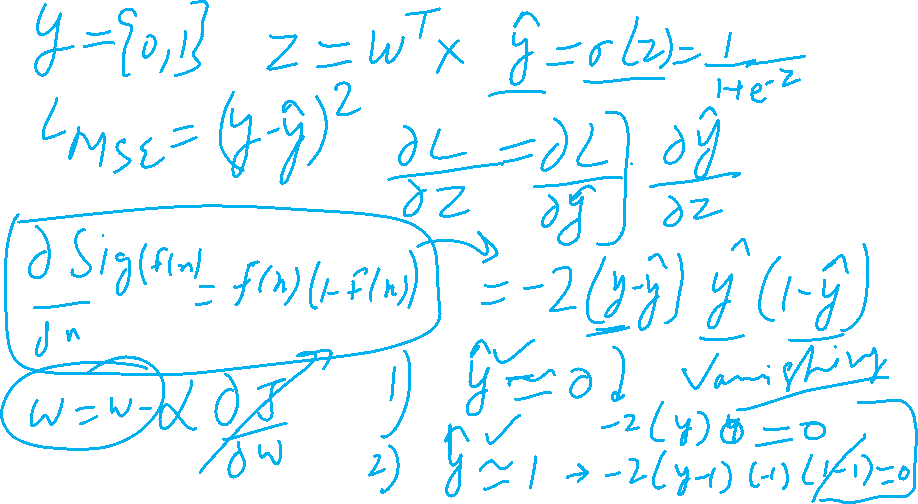 y = {0,1} z = wᵀx ŷ = σ(z) = 1/(1+e^-z)
L_MSE = (y-ŷ)²
∂L/∂z = ∂L/∂ŷ] · ∂ŷ/∂z
∂ Sig(f(n))/∂n = f(n)(1-f(n)) = -2(y-ŷ) ŷ(1-ŷ)
w = w - α ∂J/∂w
1) ŷ ≈ 0 Vanishing
-2(y)0 = 0
2) ŷ ≈ 1 → -2(y-1)(-1)(1-1)=0